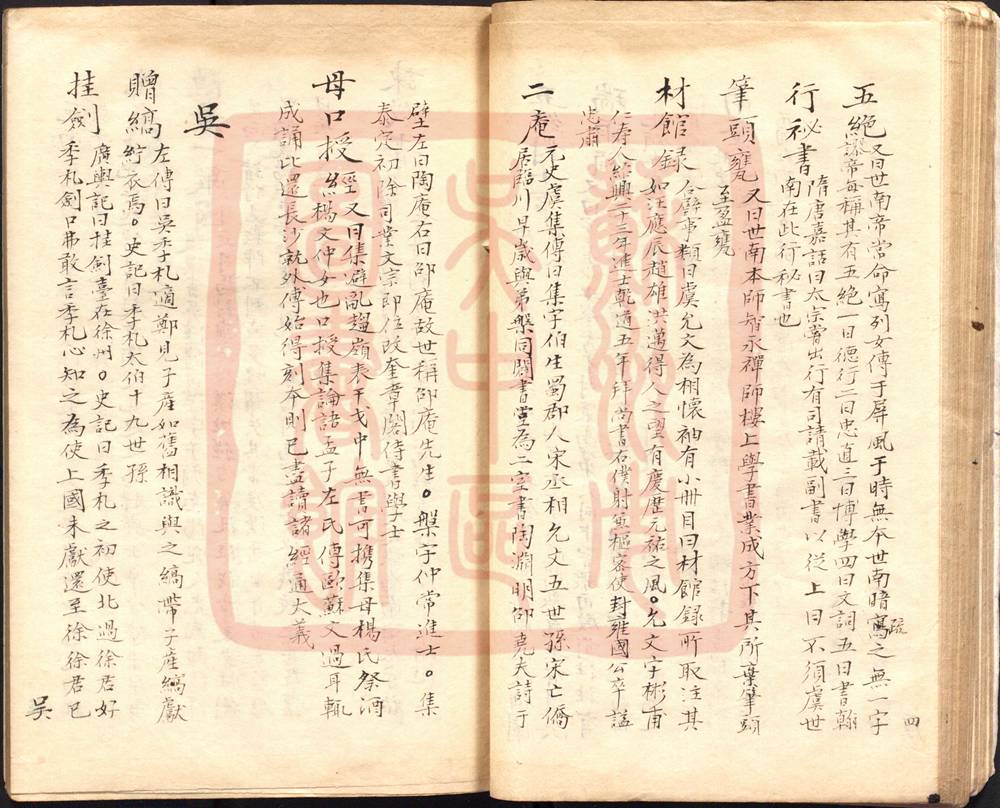 五絕 又曰世南帝嘗命寫列女傳于屏風于時無本世南暗寫之無一字
謬帝每稱其有五絕一曰德行二曰忠直三曰博學四曰文詞五曰書翰
行祕書 隋唐嘉話曰太宗嘗出行有司請載副書以從上曰不須虞世
南在此行秘書也
筆頭甕 又曰世南本師智永禪師樓上學書業成方下其所棄筆頭
至盈甕
材館录 合璧事類曰虞允文為相懷袖有小冊目曰材館録所取注其
如汪應辰趙雄洪邁得人之望有慶歷元祐之風○允文字彬甫
仁寿人紹興二十三年進士乾道五年拜尚書右僕射兼樞密使封雍國公卒謚
忠肅
二庵 元史虞集傳曰集字伯生蜀郡人宋丞相允文五世孫宋亡僑
居臨川早歲與弟槃同闢書堂為二室書陶淵明邵堯夫詩于
四
壁左曰陶庵右曰邵庵故世稱邵庵先生○槃字仲常進士○集
泰定初除司業文宗即位改奎章閣侍書學士
母口授經 又曰集避亂趨嶺表干戈中無書可携集母楊氏祭酒
楊文仲女也口授集論語孟子左氏傳歐蘇文過耳輒
成誦比還長沙就外傅始得刻本則已盡讀諸經通大義
吳
贈縞紵 左傳曰吳季札適鄭見子産如舊相識與之縞帶子産縞獻
衣焉○史記曰季札太伯十九世孫
挂劍 廣輿記曰挂劍臺在徐州○史記曰季札之初使北過徐君好
季札劍口弗敢言季札心知之為使上國未獻還至徐徐君已
吳